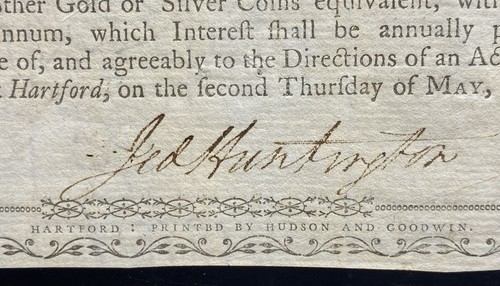 other Gold or Silver Coins equivalent, with
nnum, which Intereſt ſhall be annually p
e of, and agreeably to the Directions of an Ac
Hartford, on the ſecond Thurſday of MAY,
Jed Huntington
HARTFORD: PRINTED BY HUDSON AND GOODWIN.